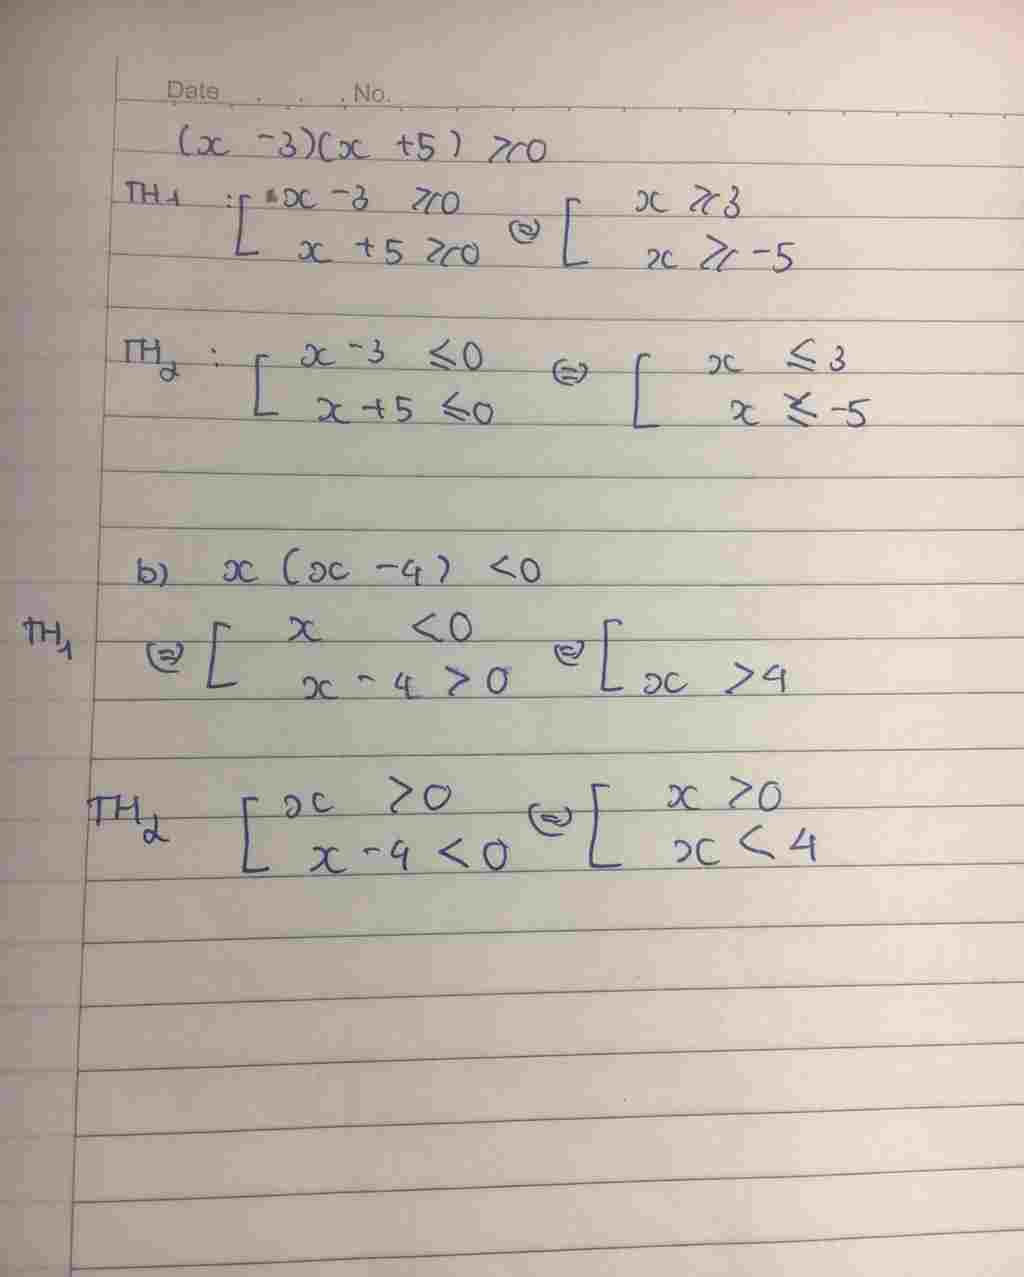 Date . . . No.
(x - 3)(x + 5) ≥ 0
TH1 : [ x - 3 ≥ 0 ⇔ [ x ≥ 3
x + 5 ≥ 0 x ≥ -5
TH2 : [ x - 3 ≤ 0 ⇔ [ x ≤ 3
x + 5 ≤ 0 x ≤ -5
b) x (x - 4) < 0
TH1 ⇔ [ x < 0 ⇔ [
x - 4 > 0 x > 4
TH2 [ x > 0 ⇔ [ x > 0
x - 4 < 0 x < 4